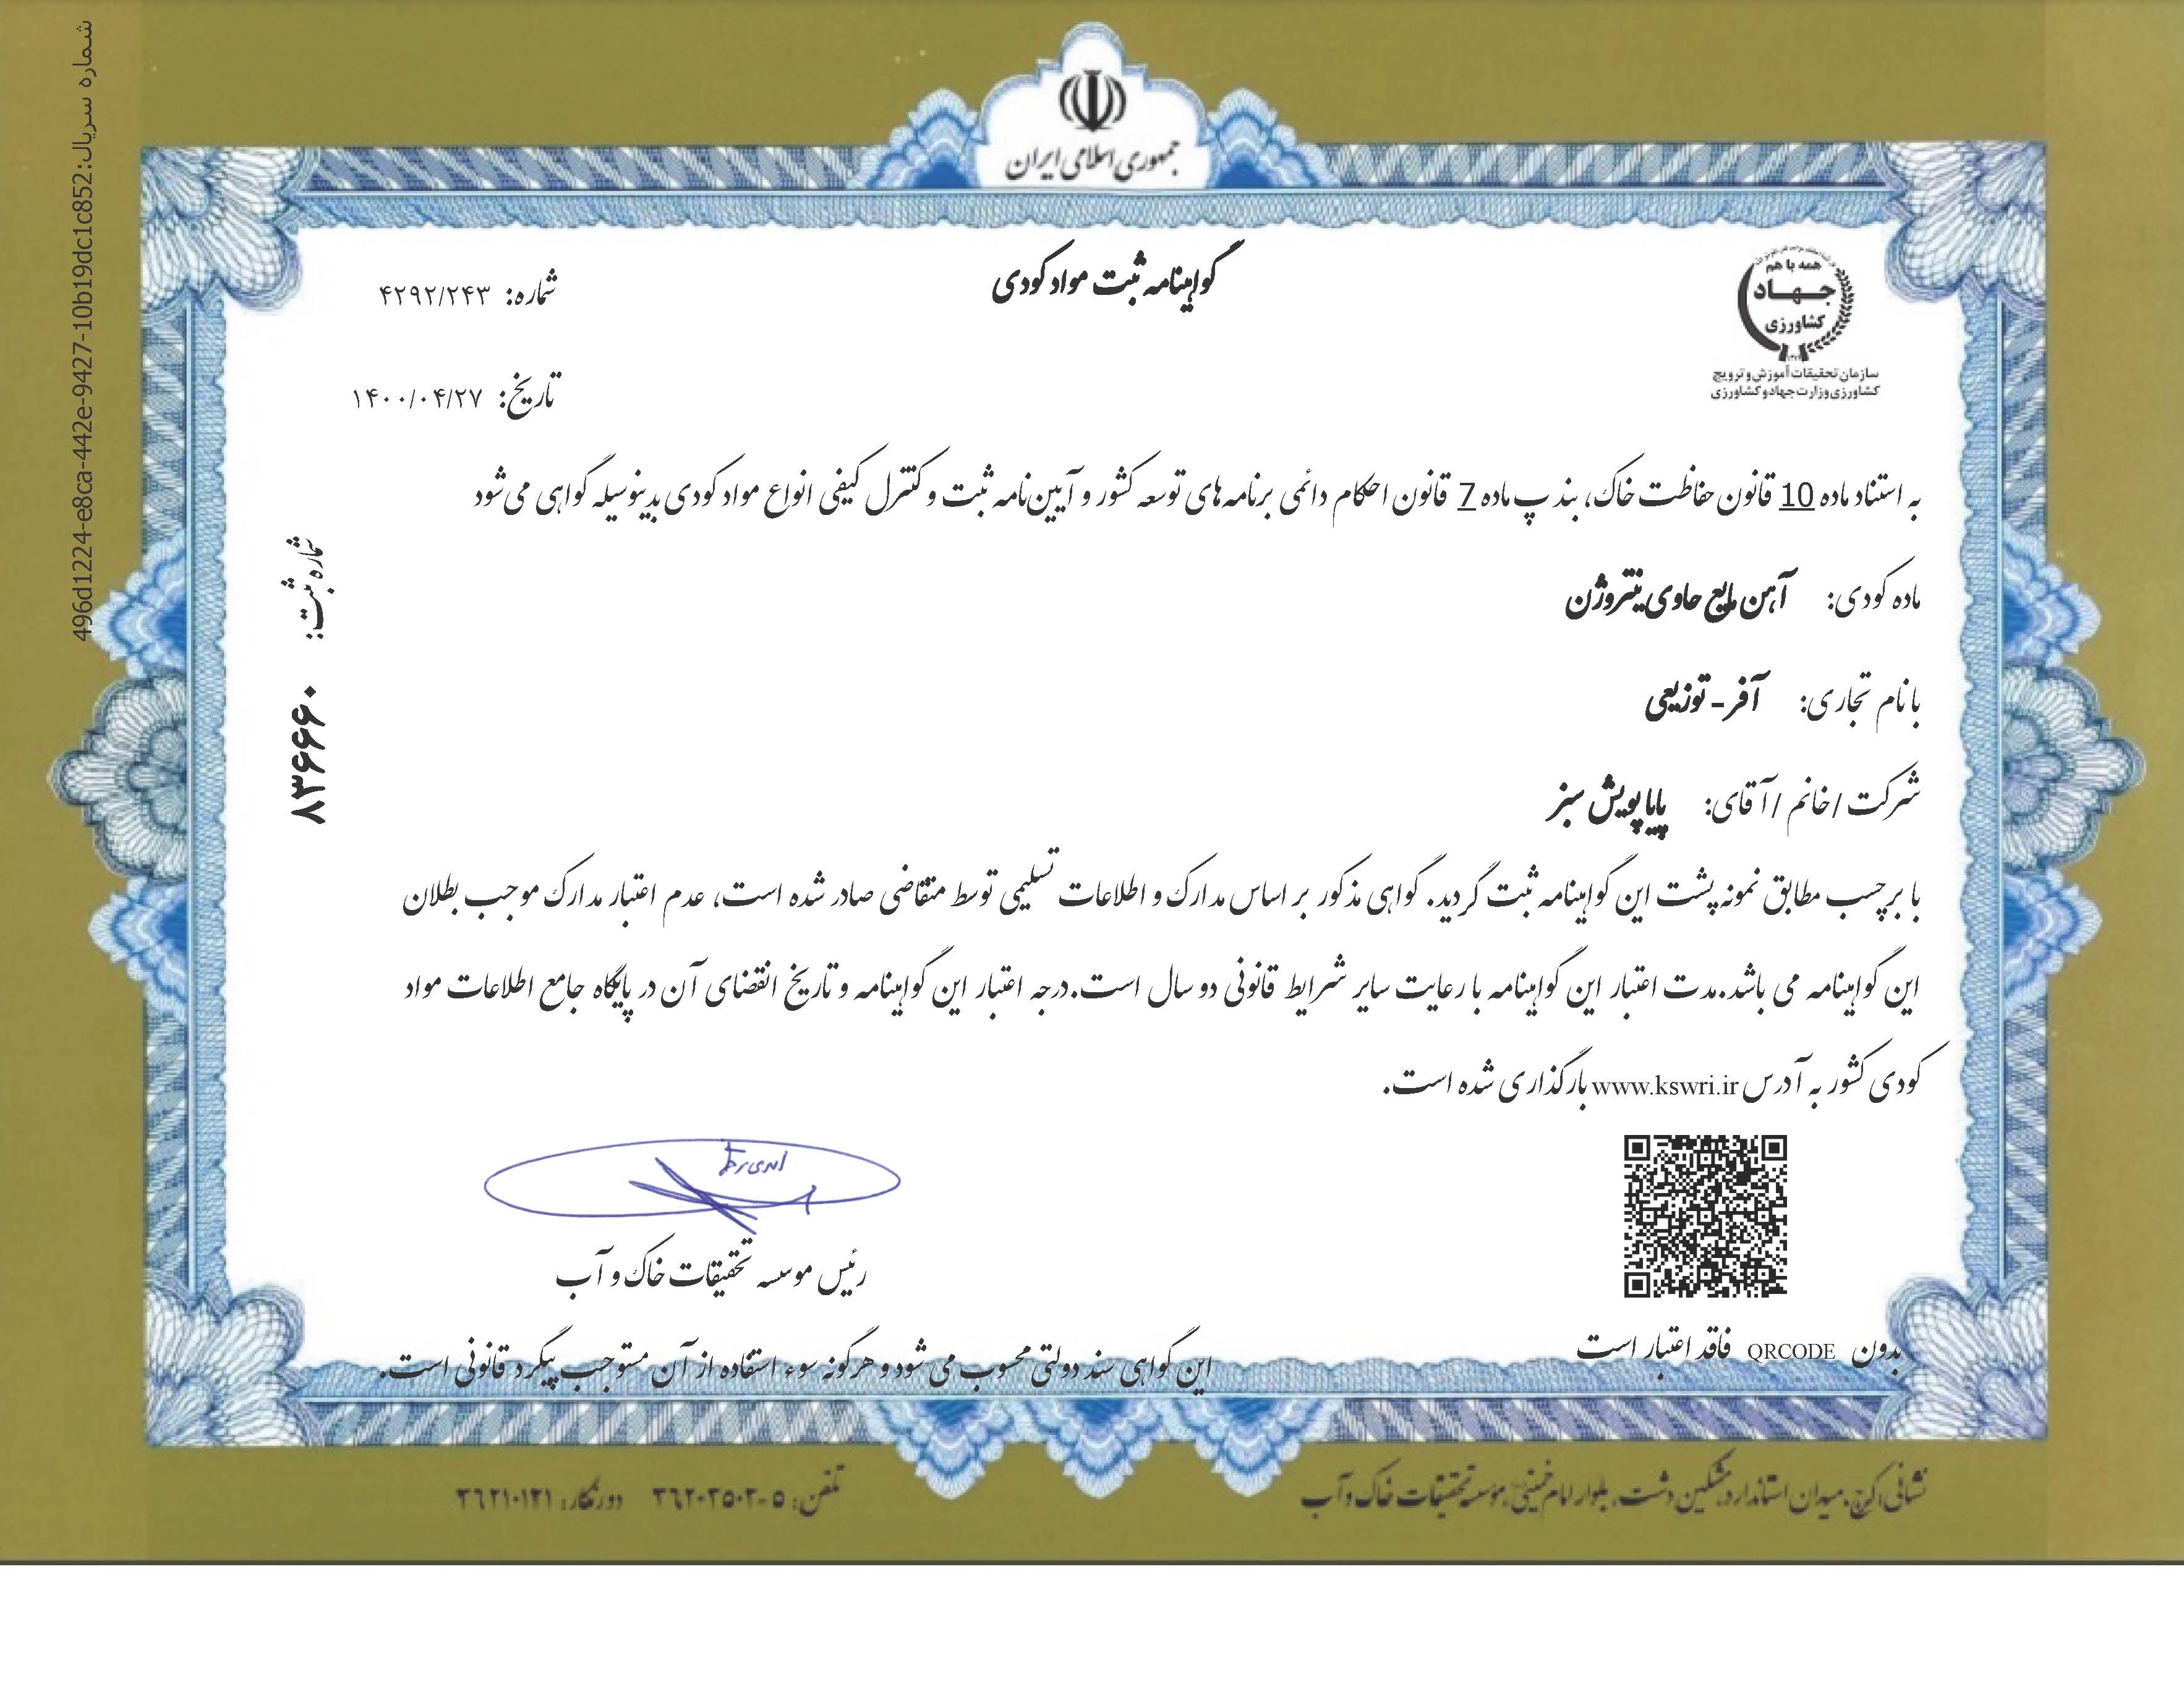 شماره سریال:496d1224-e8ca-442e-9427-10b19dc1c852
جمهوری اسلامی ایران
همه با هم
جهاد
کشاورزی
سازمان تحقیقات آموزش و ترویج
کشاورزی وزارت جهاد و کشاورزی
گواهینامه ثبت مواد کودی
شماره: ۴۲۹۲/۲۴۳
تاریخ: ۱۴۰۰/۰۴/۲۷
به استناد ماده 10 قانون حفاظت خاک، بند پ ماده 7 قانون احکام دائمی برنامه های توسعه کشور و آیین نامه ثبت و کنترل کیفی انواع مواد کودی بدینوسیله گواهی می شود
ماده کودی: آهن مایع حاوی نیتروژن
با نام تجاری: آفر - توزیعی
شرکت /خانم /آقای: پایا پویش سبز
شماره ثبت: ۸۳۶۶۶۰
با برچسب مطابق نمونه پشت این گواهینامه ثبت گردید. گواهی مذکور بر اساس مدارک و اطلاعات تسلیمی توسط متقاضی صادر شده است، عدم اعتبار مدارک موجب بطلان
این گواهینامه می باشد.مدت اعتبار این گواهینامه با رعایت سایر شرایط قانونی دو سال است.درجه اعتبار این گواهینامه و تاریخ انقضای آن در پایگاه جامع اطلاعات مواد
کودی کشور به آدرس www.kswri.ir بارگذاری شده است.
رئیس موسسه تحقیقات خاک و آب
بدون QRCODE فاقد اعتبار است
این گواهی سند دولتی محسوب می شود و هرگونه سوء استفاده از آن مستوجب پیگرد قانونی است.
نشانی: کرج، میدان استاندارد، مشکین دشت، بلوار امام خمینی، موسسه تحقیقات خاک و آب
تلفن: ۵-۳۶۲۰۲۵۰۲ دورنگار: ۳۶۲۱۰۱۲۱